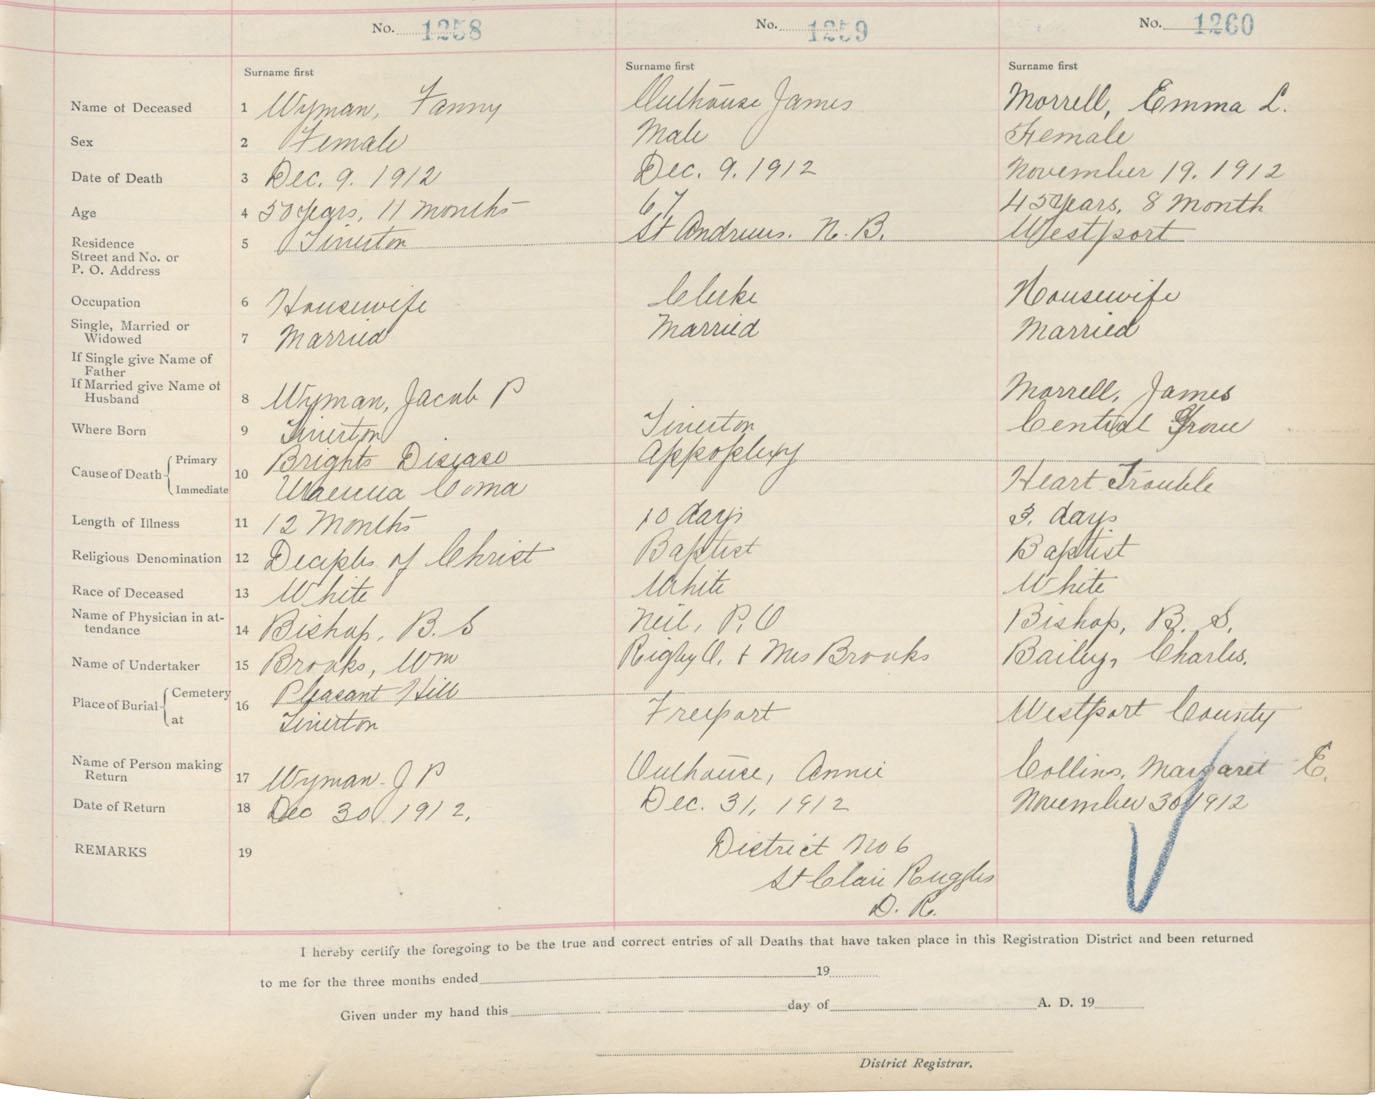 No. 1258 No. 1259 No. 1260
Surname first Surname first Surname first
Name of Deceased 1 Wyman, Fanny Outhouse James Morrell, Emma L.
Sex 2 Female Male Female
Date of Death 3 Dec. 9. 1912 Dec. 9. 1912 November 19. 1912
Age 4 50 years, 11 months 67 45 years, 8 month
Residence 5 Tiverton St Andrews. N. B. Westport
Street and No. or
P. O. Address
Occupation 6 Housewife Clerke Housewife
Single, Married or
Widowed 7 Married Married Married
If Single give Name of
Father
If Married give Name of
Husband 8 Wyman, Jacob P Morrell, James
Where Born 9 Tiverton Tiverton Central Grove
Cause of Death Primary 10 Brights Disease Appoplexy Heart Trouble
Immediate Uraemia Coma
Length of Illness 11 12 Months 10 days 3. days
Religious Denomination 12 Deciples of Christ Baptist Baptist
Race of Deceased 13 White White White
Name of Physician in at-
tendance 14 Bishop, B. S Neil, P. O Bishop, B. S.
Name of Undertaker 15 Brooks, Wm Rigby O. + Mrs Brooks Bailey, Charles.
Place of Burial Cemetery 16 Pleasant Hill Freeport Westport County
at Tiverton
Name of Person making
Return 17 Wyman J P Outhouse, Annie Collins, Margaret E.
Date of Return 18 Dec 30 1912. Dec. 31, 1912 November 30 1912
REMARKS 19 District No 6
St Clair Ruggles
D. R.
I hereby certify the foregoing to be the true and correct entries of all Deaths that have taken place in this Registration District and been returned
to me for the three months ended 19
Given under my hand this day of A. D. 19
District Registrar.